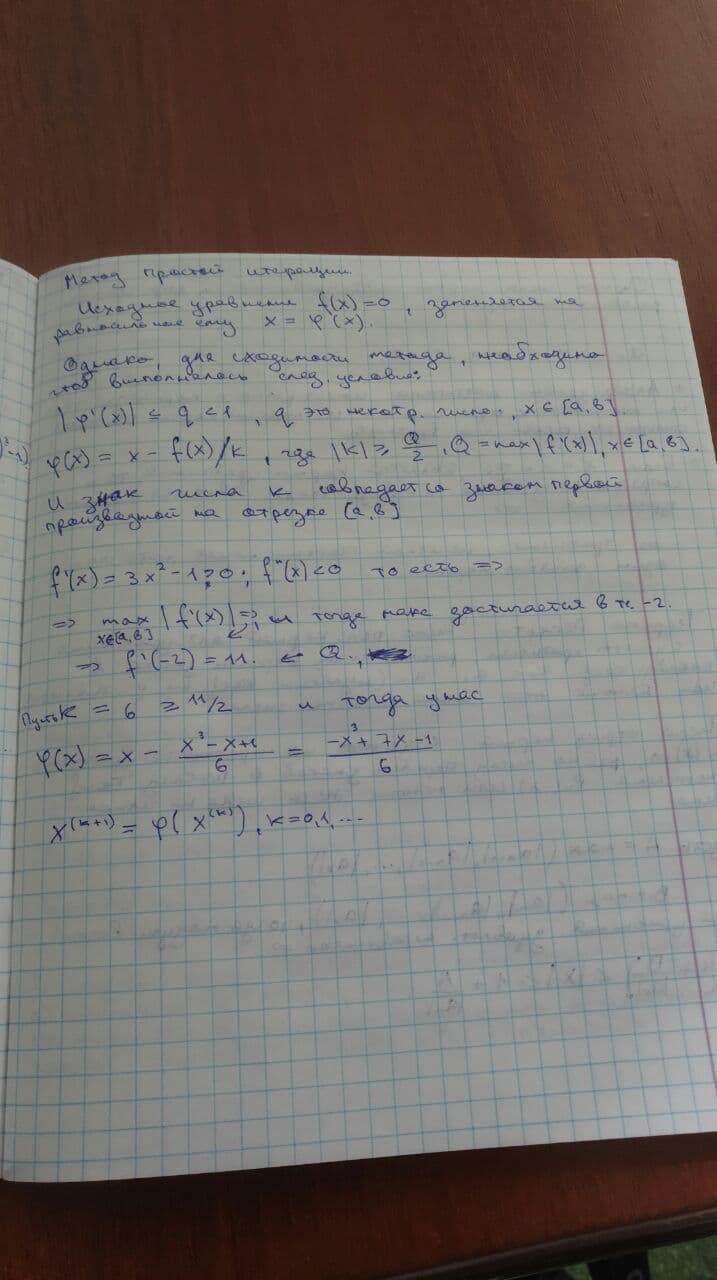 Метод простой итерации.
Исходное уравнение f(x)=0, заменяется на
равносильное ему x = φ(x).
Однако, для сходимости метода, необходимо
чтоб выполнялось след. условие:
|φ'(x)| ≤ q < 1, q это некотр. число, x ∈ [a,b].
φ(x) = x - f(x)/k, где |k| ≥ Q/2, Q = max|f'(x)|, x ∈ [a,b].
И знак числа k совпадает со знаком первой
производной на отрезке [a,b]
f'(x) = 3x² - 1 > 0; f''(x) < 0 то есть =>
=> max |f'(x)| => и тогда макс достигается в тч. -2.
x∈[a,b]
=> f'(-2) = 11. ← Q.,
Пусть k = 6 ≥ 11/2 и тогда у нас
φ(x) = x - (x³ - x + 1)/6 = (-x³ + 7x - 1)/6
x^(k+1) = φ(x^(k)), k = 0,1,...